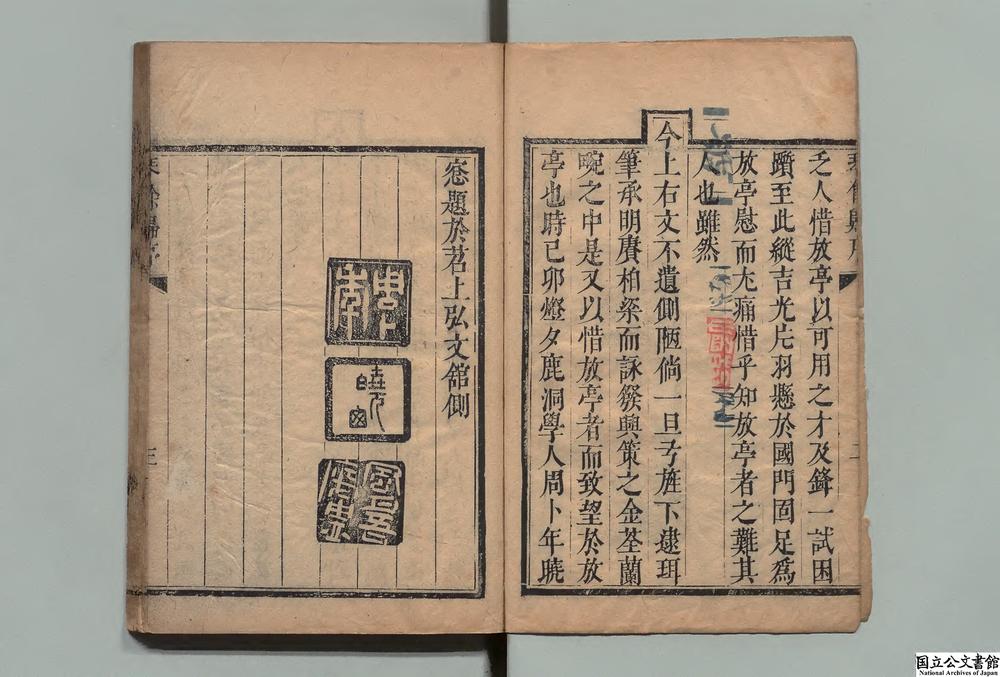 乏人惜放亭以可用之才及鋒一試困
躓至此縱吉光片羽懸於國門固足爲
放亭慰而尤痛惜乎知放亭者之難其
人也雖然
今上右文不遺側陋倘一旦弓旌下逮珥
筆承明賡柏梁而詠簇興策之金荃蘭
畹之中是又以惜放亭者而致望於放
亭也時己卯燈夕鹿洞學人周卜年曉
窓題於苕上弘文舘側
周卜年
曉窗
三
国立公文書館
National Archives of Japan